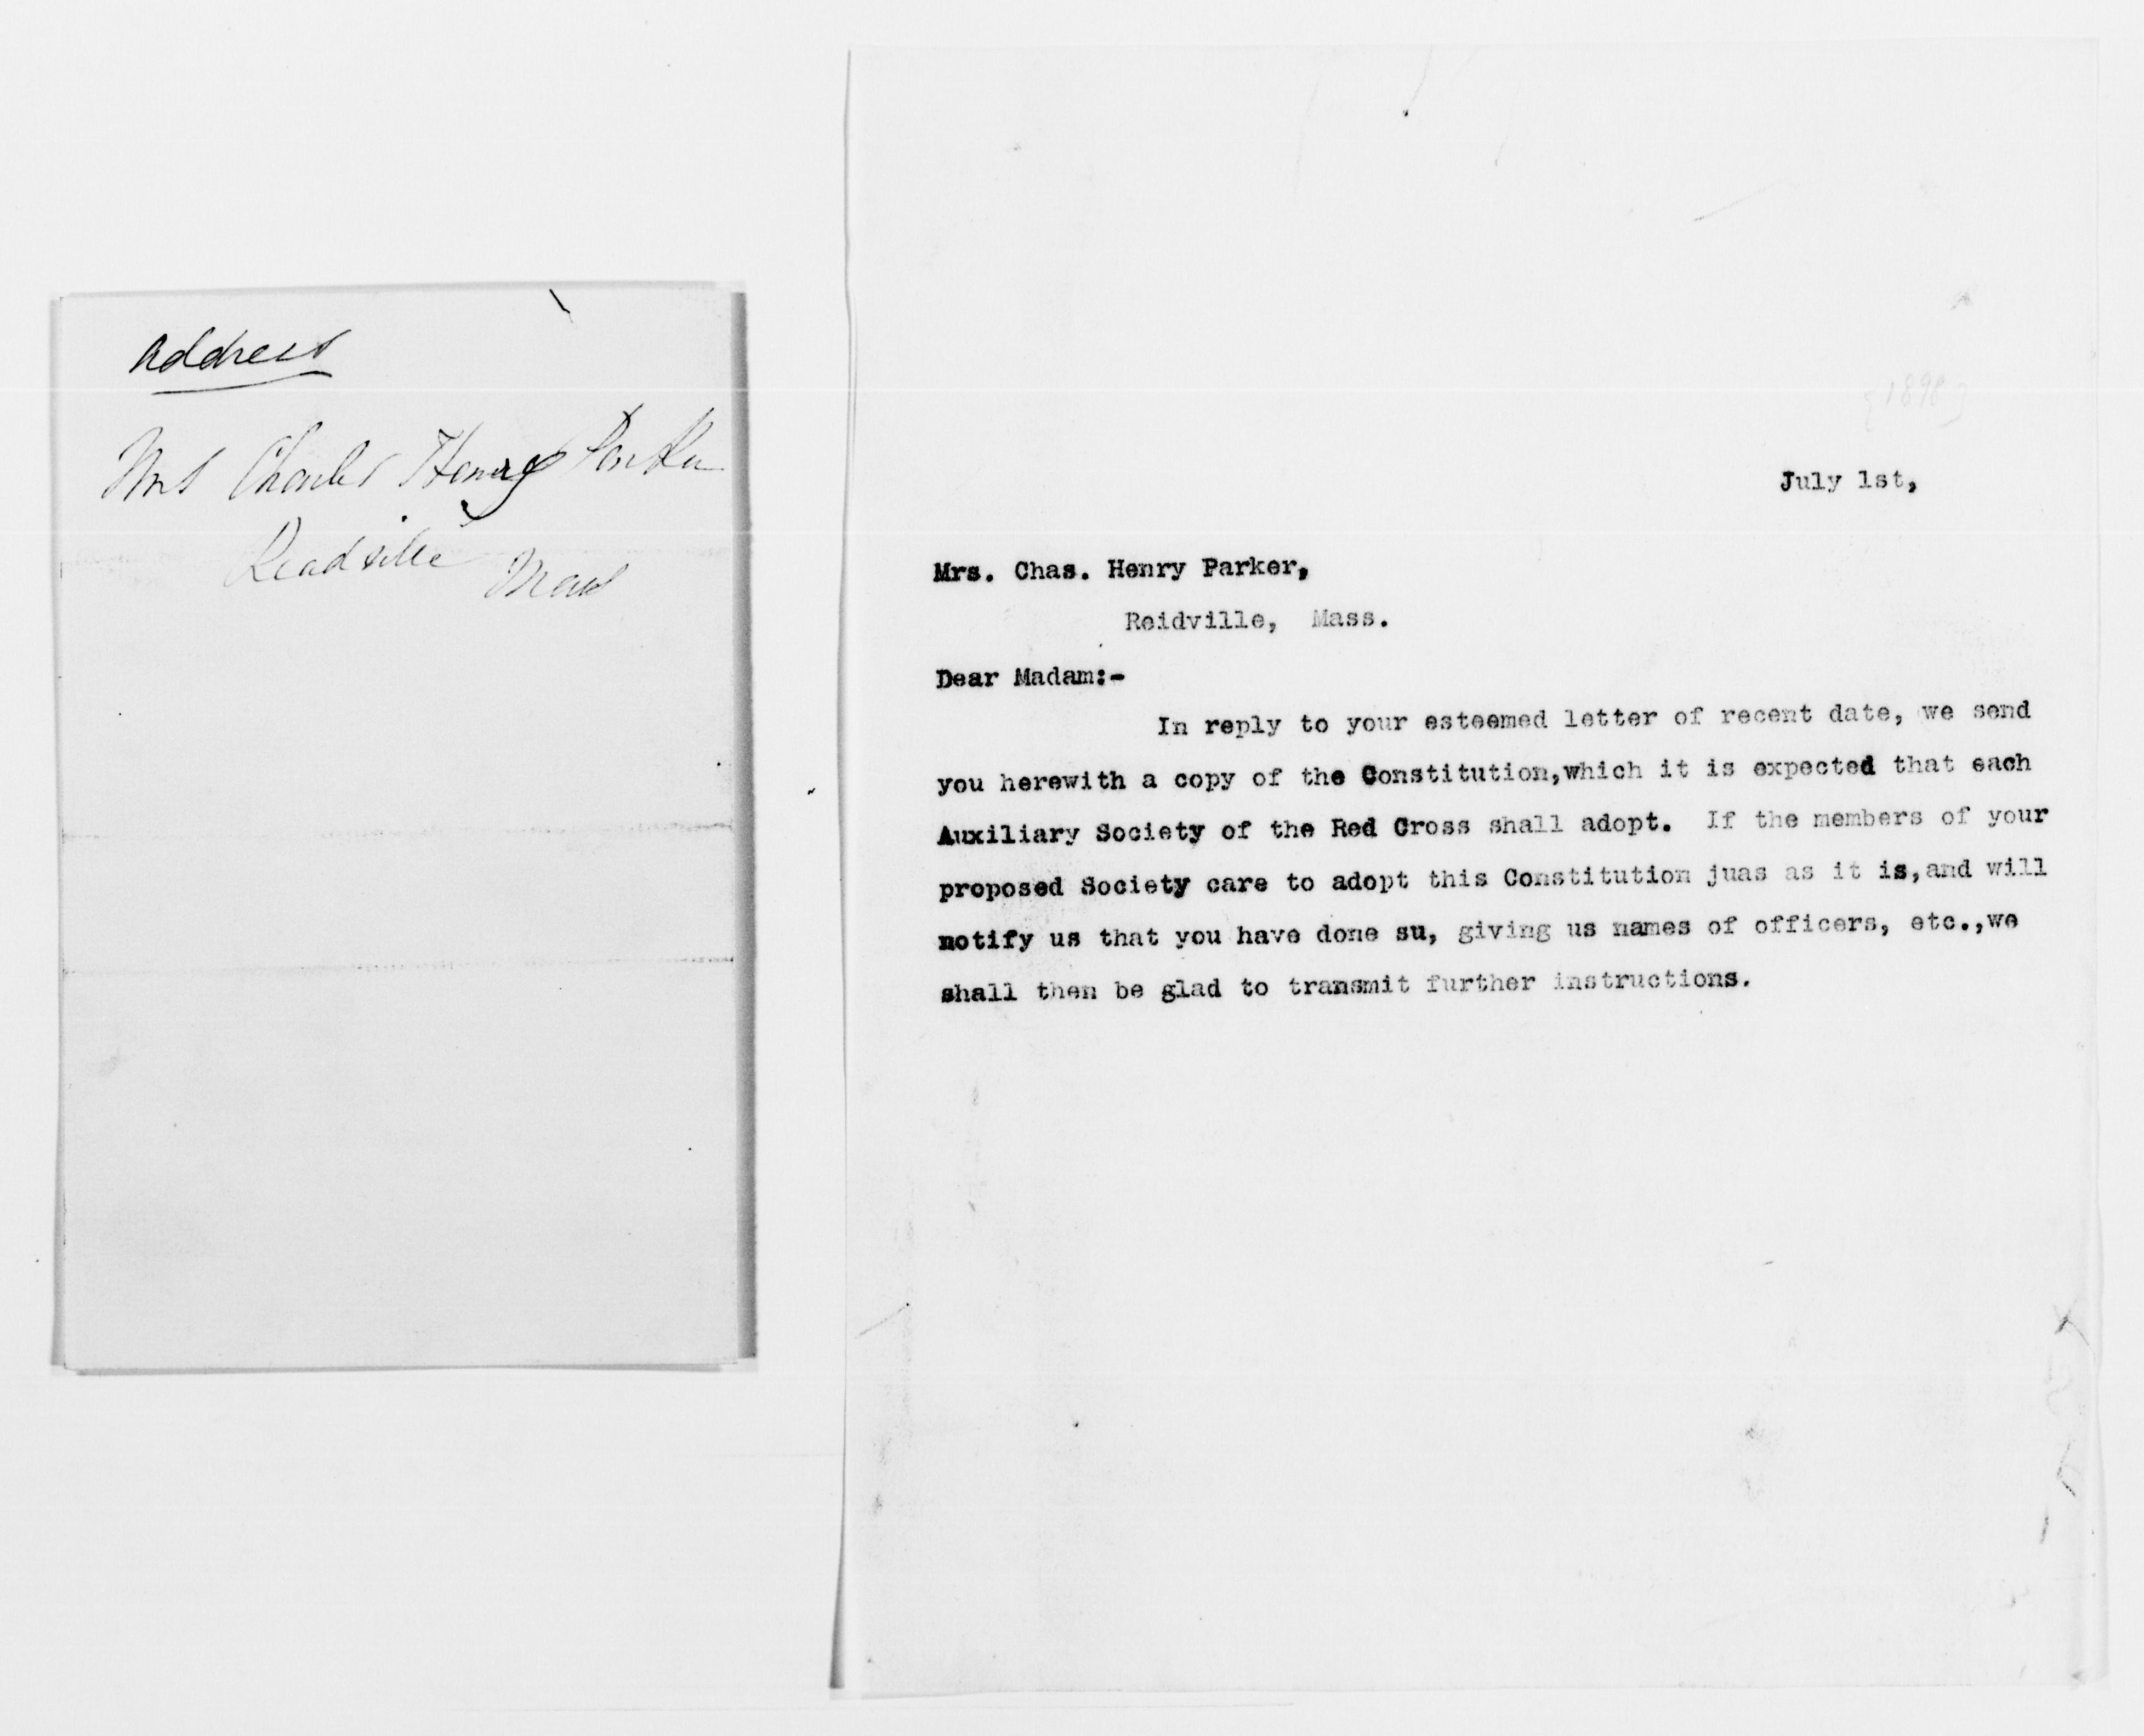 Address
Mrs Charles Henry Parker
Readville Mass
[1898]
July 1st,
Mrs. Chas. Henry Parker,
Reidville, Mass.
Dear Madam:-
In reply to your esteemed letter of recent date, we send
you herewith a copy of the Constitution,which it is expected that each
Auxiliary Society of the Red Cross shall adopt. If the members of your
proposed Society care to adopt this Constitution juas as it is,and will
notify us that you have done su, giving us names of officers, etc.,we
shall then be glad to transmit further instructions.